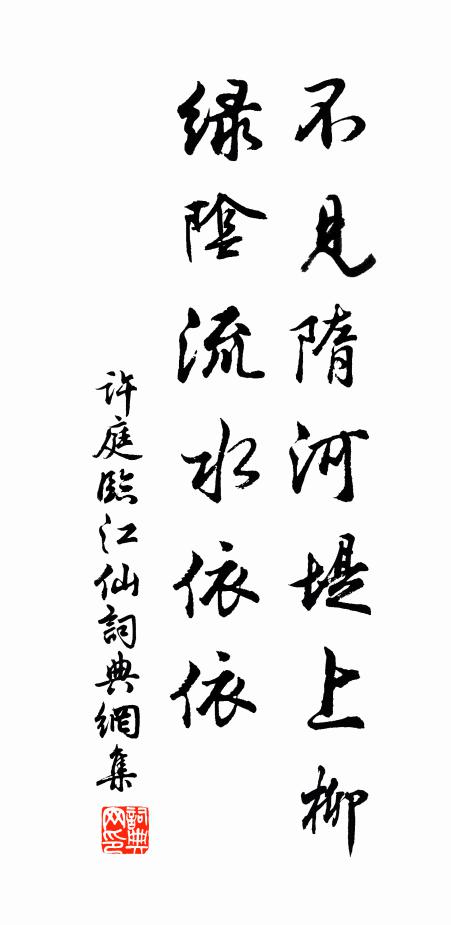 不見隋河堤上柳
綠陰流水依依
許庭臨江仙詞典網集
詞典网印